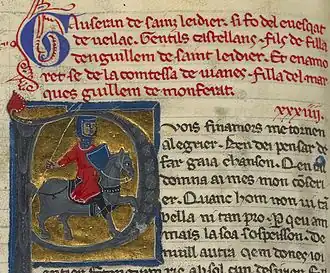 Gauseran de saint leidier. si fo del euesqat
de ueilac. Gentils castellans. fils de filla
denguillem de saint leidier. Et enamo
ret se de la comtessa de uianes. filla del mar
ques guillem de monferat.
xxxiiii.
Puois finamors me torn en
alegrier. Ben dei pensar de
far gaia chanson. Q en bo
domna ai mes mon cossir
er. Quanc hom non ui ta
bella ni tan pro. Per qeu am
mais la soa sospeisson. De
nuill autra qem donei ioi